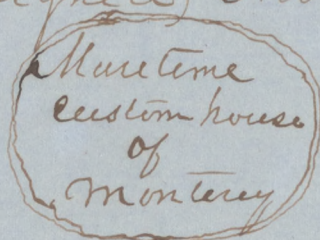 Maritime
Custom house
of
Monterey